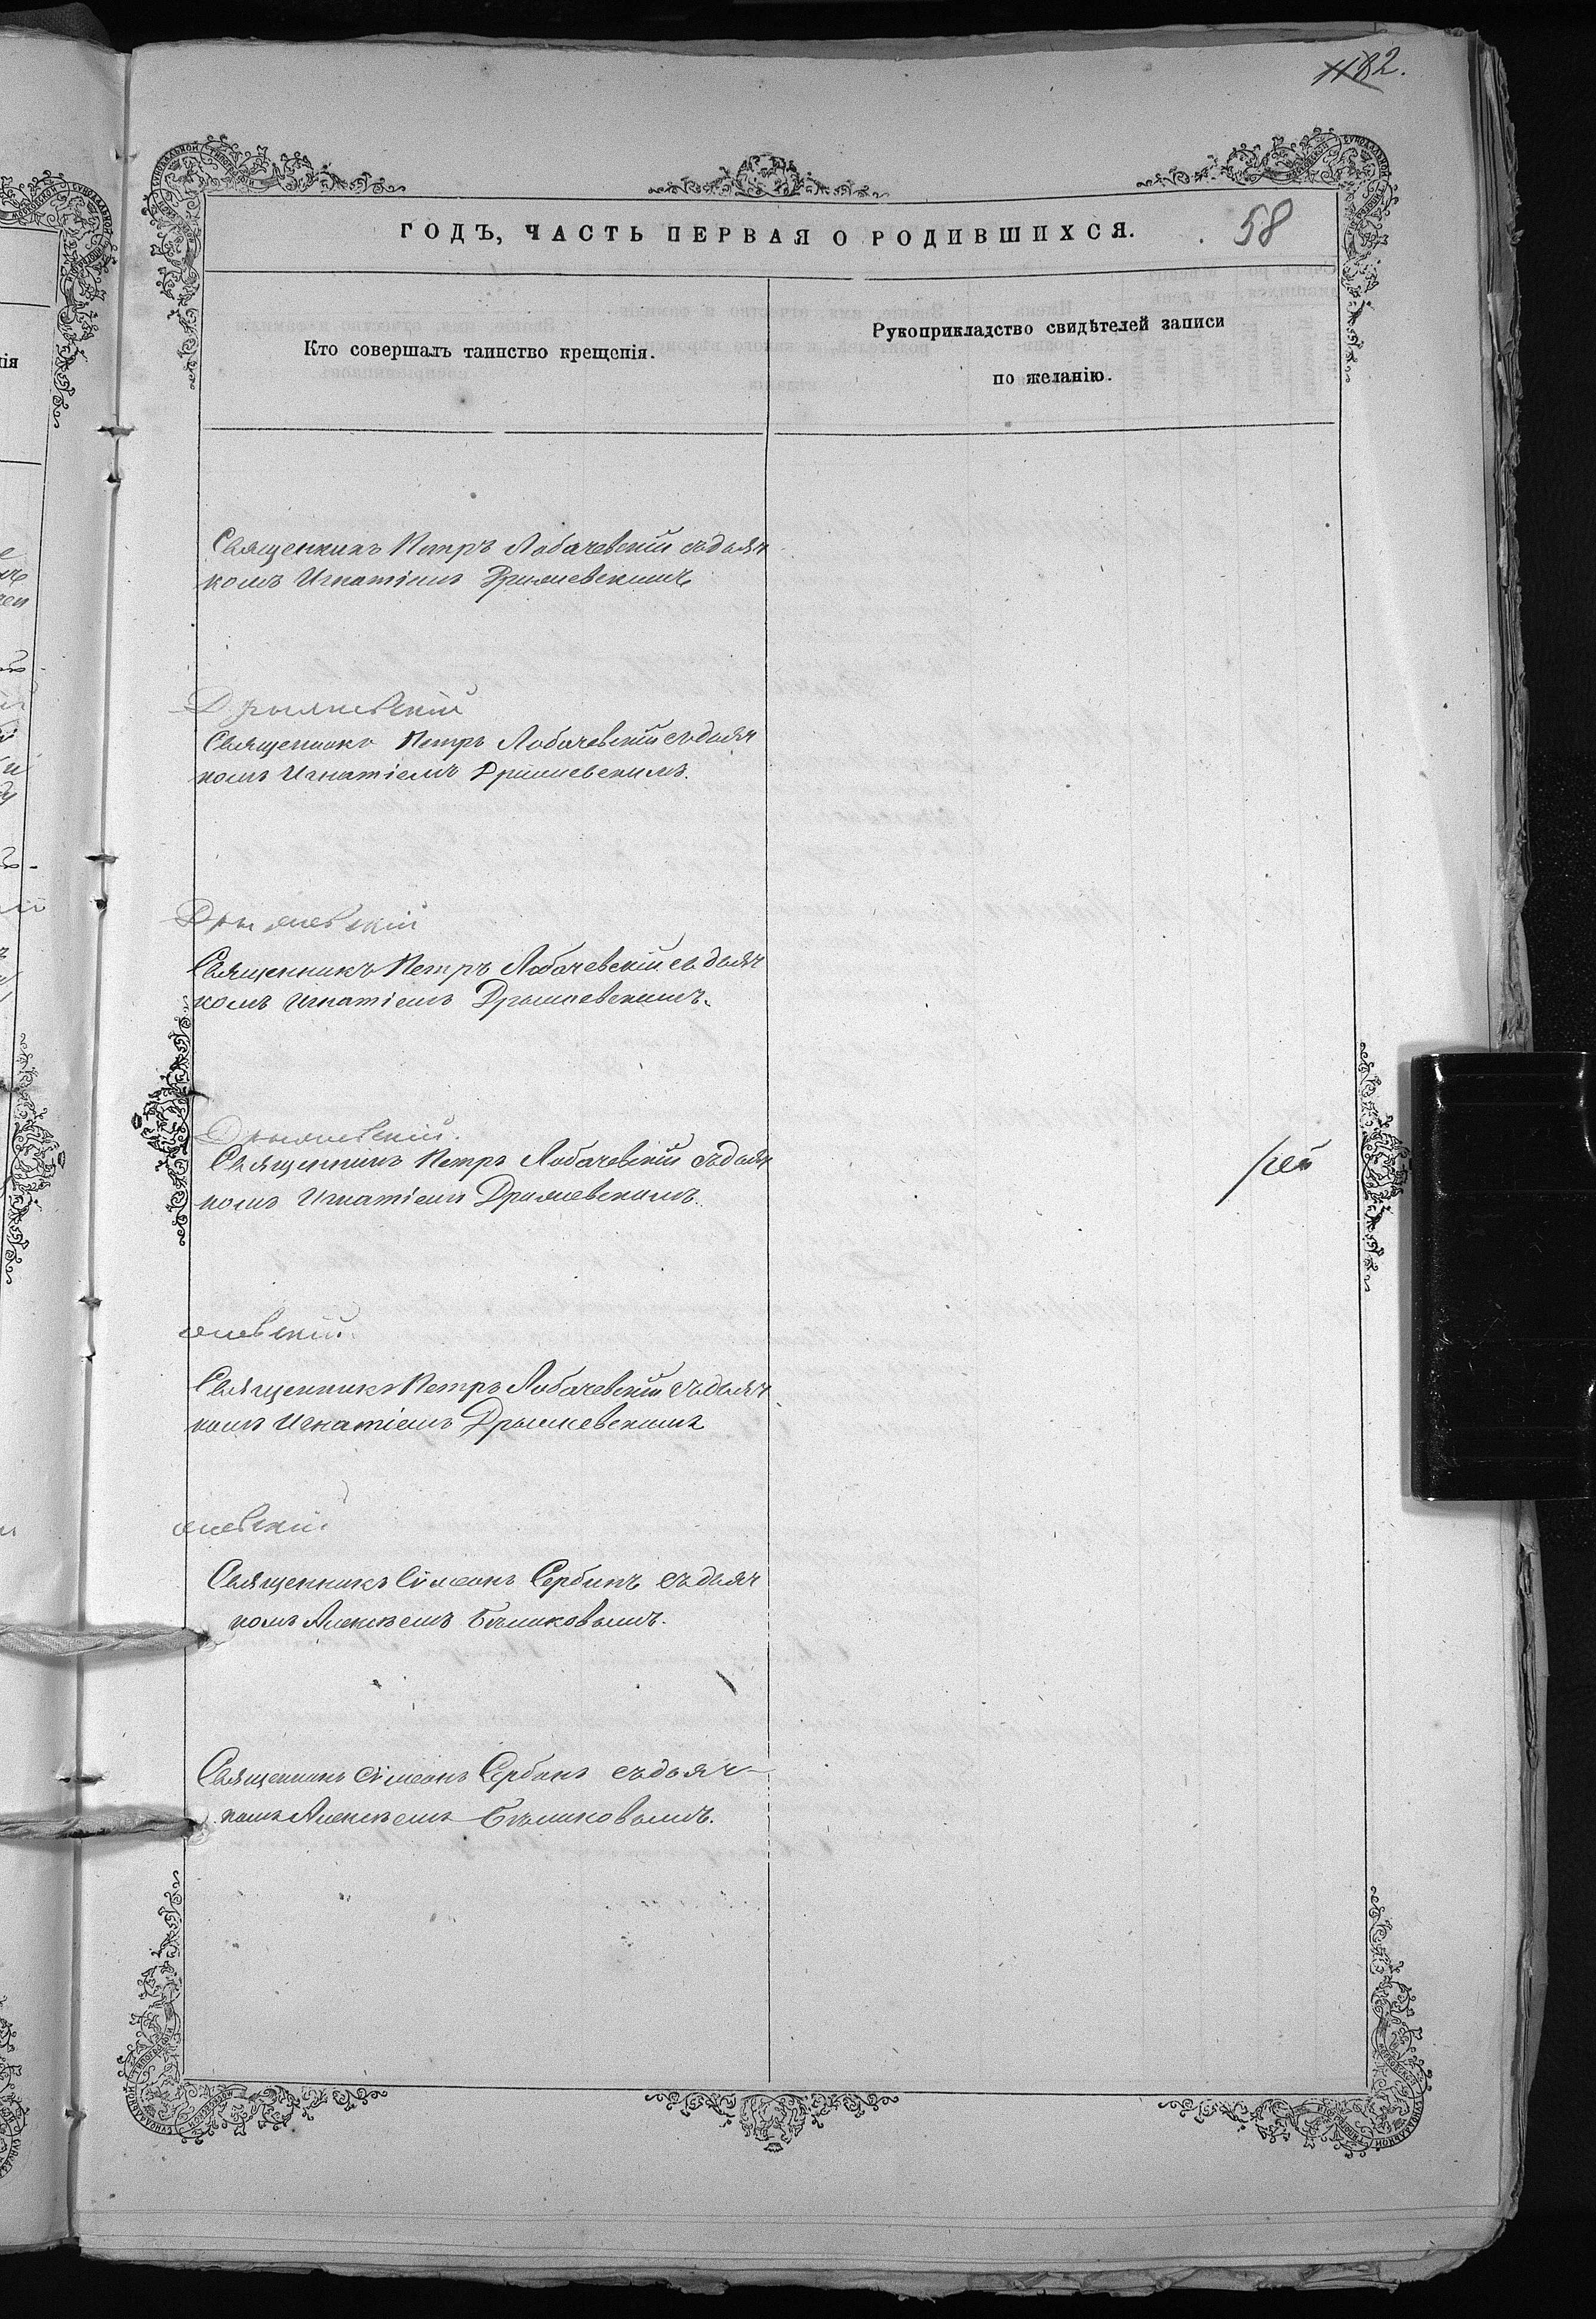 82.
ГОДЪ, ЧАСТЬ ПЕРВАЯ О РОДИВШИХСЯ.
58
Кто совершалъ таинство крещенія.
Рукоприкладство свидѣтелей записи
по желанію.
Священникъ Петръ Лобачевскій съ дьяч
комъ Игнатіемъ Дрымлевскимъ
Дрымлевскій
Священникъ Петръ Лобачевскій съ дьяч
комъ Игнатіемъ Дрымлевскимъ.
Дрымлевскій
Священникъ Петръ Лобачевскій съ дьяч
комъ Игнатіемъ Дрымлевскимъ.
Дрымлевскій.
Священникъ Петръ Лобачевскій съ дьяч
комъ Игнатіемъ Дрымлевскимъ.
млевскій.
Священникъ Петръ Лобачевскій съ дьяч
комъ Игнатіемъ Дрымлевскимъ
млевскій
Священникъ Сімеонъ Сербинъ съ дьяч
комъ Алексѣемъ Бѣликовымъ.
Священникъ Сімеонъ Сербинъ съ дьяч-
комъ Алексѣемъ Бѣликовымъ.